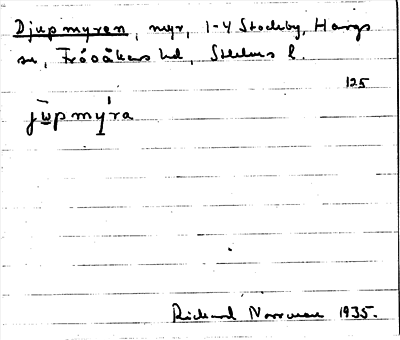 Djupmyren, myr, 1-4 Stockby, Hargs
sn, Frösåkers hd, Sthlms l.
125
jūpmýra
Richard Norrman 1935.